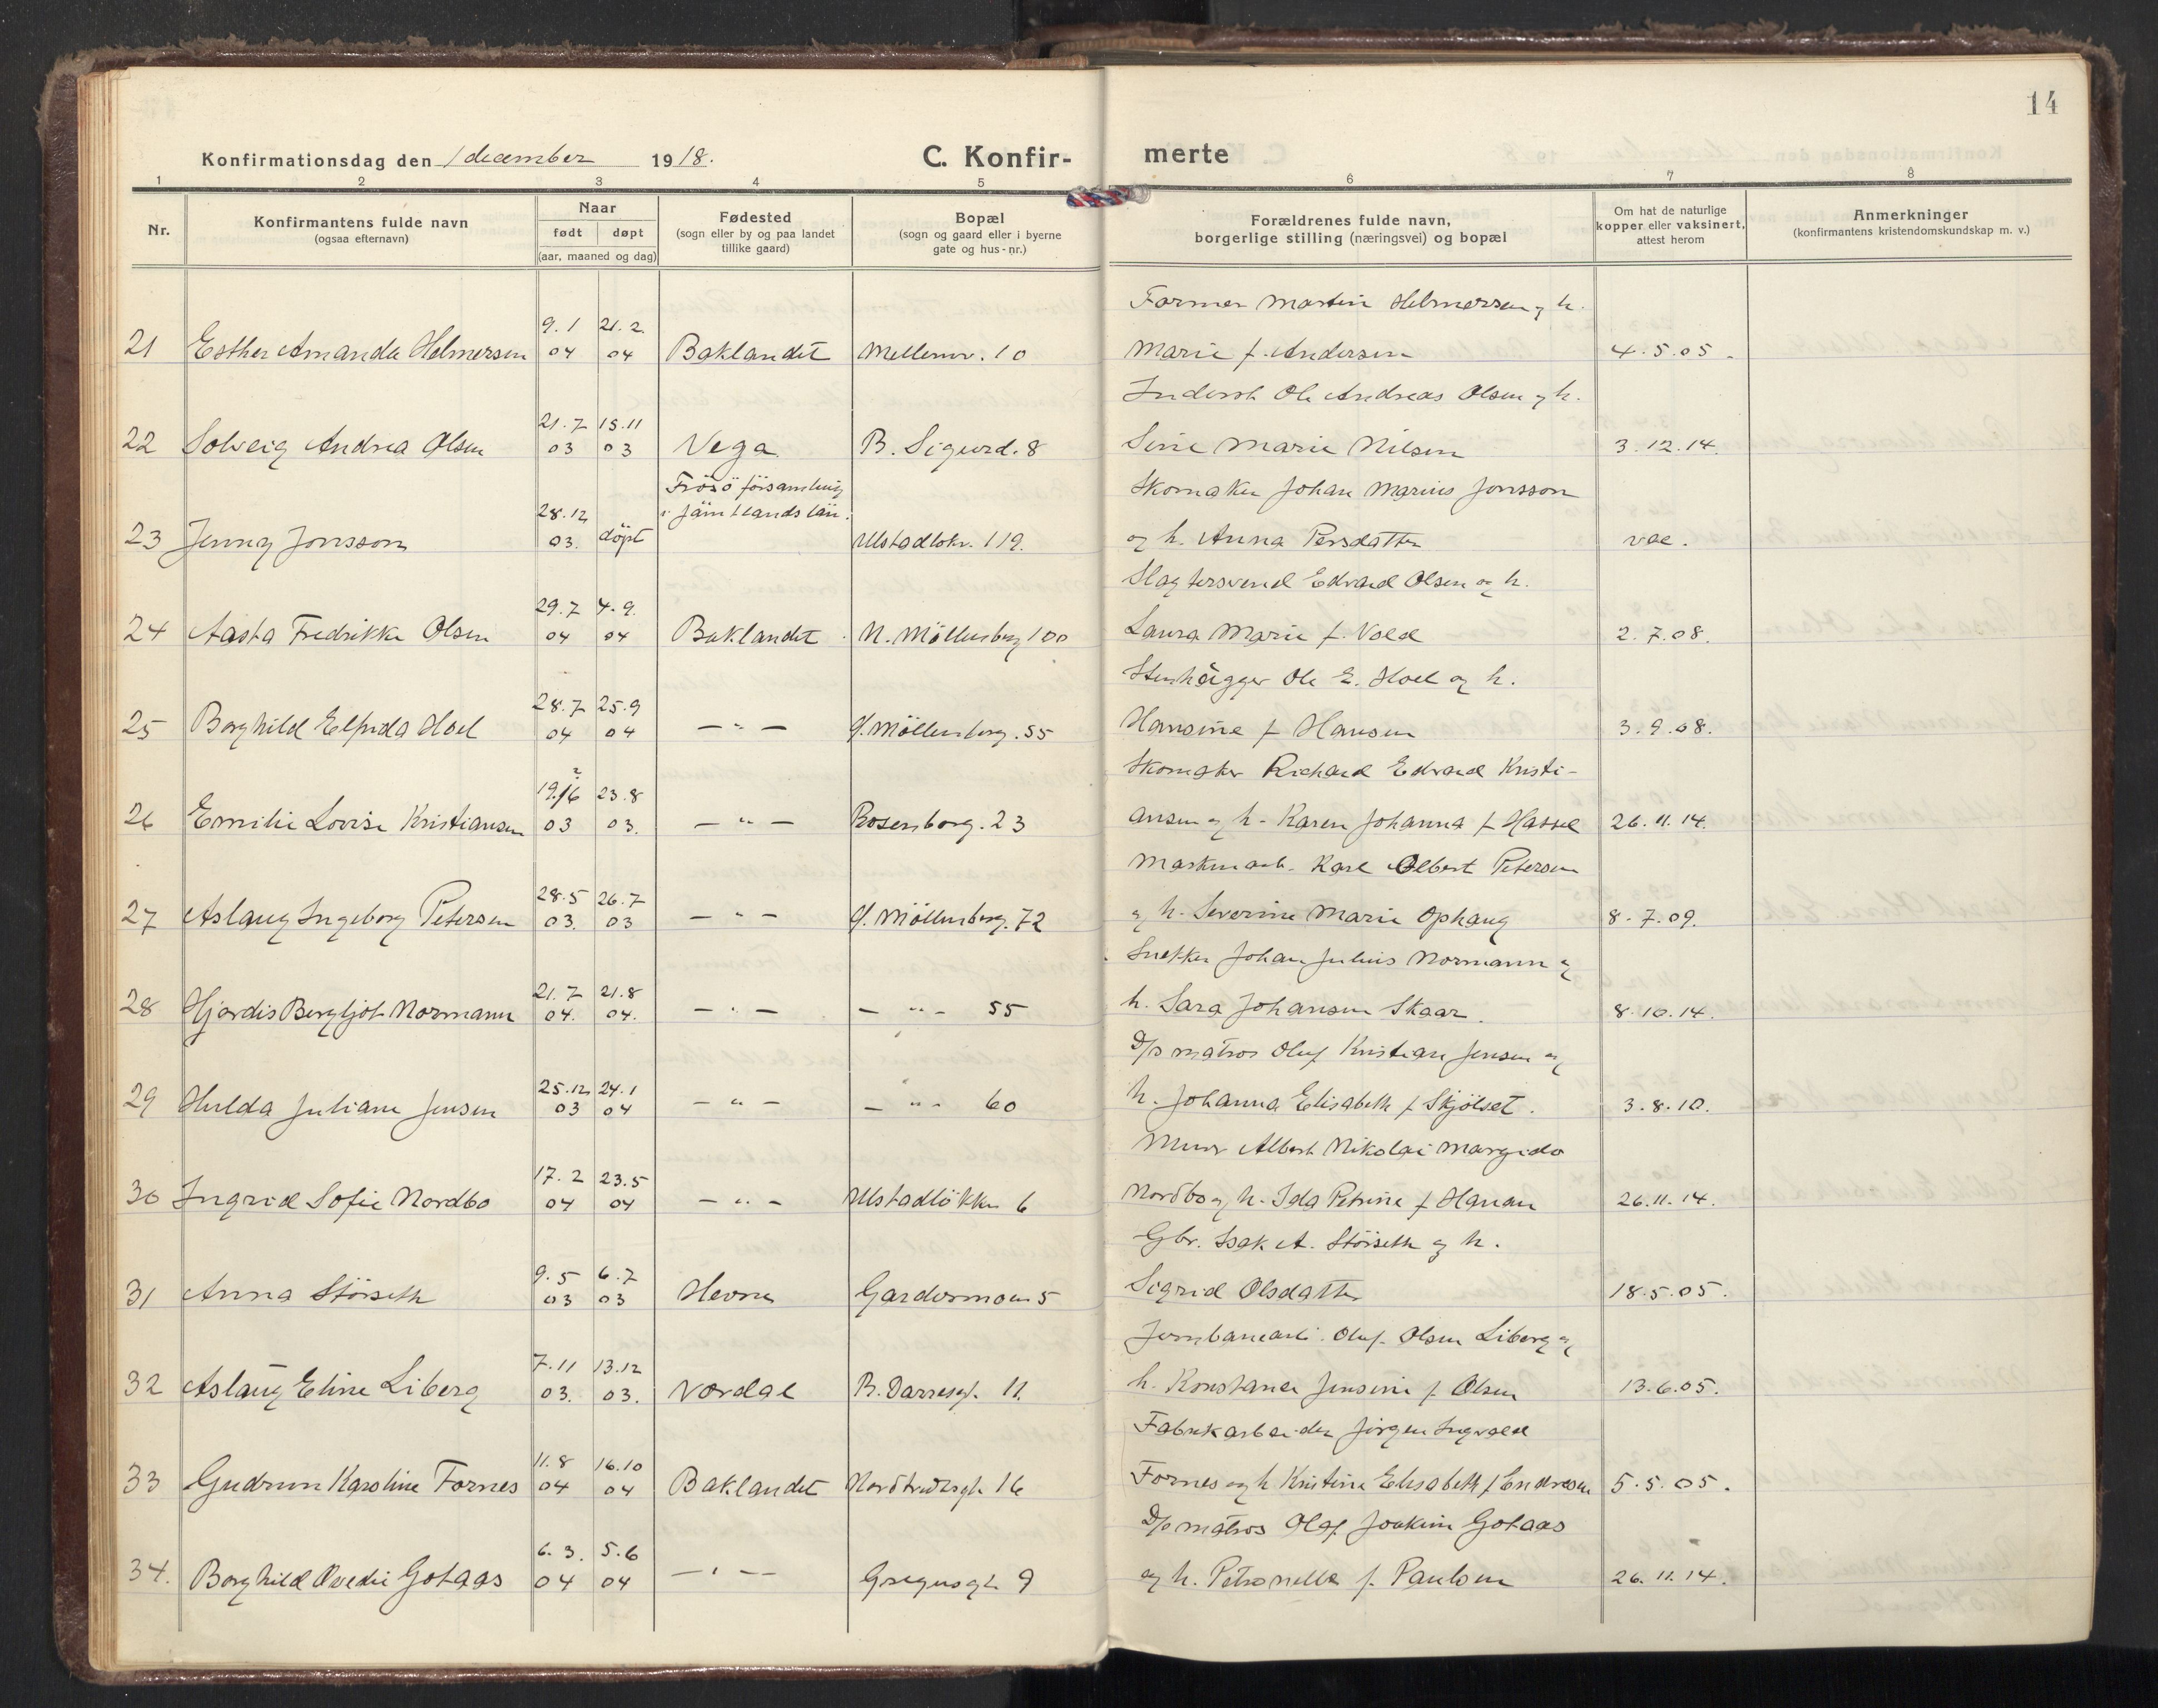 14
Konfirmationsdag den 1 december 1918.
C. Konfir-
merte
1 2 3 4 5 6 7 8
Nr.
Konfirmantens fulde navn
(ogsaa efternavn)
Naar
født døpt
(aar, maaned og dag)
Fødested
(sogn eller by og paa landet
tillike gaard)
Bopæl
(sogn og gaard eller i byerne
gate og hus-nr.)
Forældrenes fulde navn,
borgerlige stilling (næringsvei) og bopæl
Om hat de naturlige
kopper eller vaksinert,
attest herom
Anmerkninger
(konfirmantens kristendomskundskap m. v.)
9.1 21.2. Former Martin Helmersen og h.
21 Esther Amanda Helmersen 04 04 Baklandet Mellemv. 10 Marie f. Andersen 4.5.05.
21.7 15.11 Ole Andreas Olsen og h.
22 Solveig Andrea Olsen 03 03 Vega B. Sigurd. 8 Sine Marie Nilsen 3.12.14.
Frösö försambling
28.12 i Jämtlands län. Skomaker Johan Marius Jonsson
23 Jenny Jonsson 03. döpt Ulstadløkv. 119. og h. Anna Persdatter vac.
29.7 4.9. Slagtersvend Edvard Olsen og h.
24 Aasta Fredrikke Olsen 04 04 Baklandet N. Möllenberg 100 Laura Marie f. Vold 2.7.08.
28.7 25.9 Stenhugger Ole E. Hoel og h.
25 Borghild Elfrida Hoel 04 04 — " — Ö. Möllenberg. 55 Hansine f Hansen 3.9.08.
19./6 23.8 Skomaker Richard Edvard Kristi-
26 Emilie Lovise Kristiansen 03 03. — " — Rosenborg. 23 ansen og h. Karen Johanna f Hassel 26.11.14.
28.5 26.7 Maskinarb. Karl Albert Petersen
27 Aslaug Ingeborg Petersen 03. 03 — " — Ö. Möllenberg. 72 og h. Severine Marie Ophaug 8.7.09.
21.7 21.8 Snekker Johan Julius Normann og
28 Hjørdis Bergljot Normann 04. 04. — " — — " — 55 h. Sara Johansen Skaar. 8.10.14.
25.12 24.1 D/s matros Oluf Kristian Jensen og
29 Hulda Juliane Jensen 03 04 — " — — " — 60 h. Johanna Elisabeth f Skjölset. 3.8.10.
17.2 23.5 Murer Albert Nikolai Margido
30 Ingrid Sofie Nordbo 04 04 — " — Ulstadløkken 6 Nordbo og h. Ida Petrine f Hanan 26.11.14.
9.5 6.7 Gbr. Isak A. Störseth og h.
31 Anna Störseth 03 03 Hevne Gardermoen 5 Sigrid Olsdatter 18.5.05.
7.11 13.12 Jernbanearb. Oluf Olsen Liberg og
32 Aslaug Eline Liberg 03. 03. Værdal R. Darresgt. 11. h. Konstanse Jensine f. Olsen 13.6.05.
11.8 16.10 Fabrikarbeider Jörgen Ingvald
33 Gudrun Karoline Fornes 04 04 Baklandet 16 Fornes og h Kristine Elisabeth f Endresen 5.5.05.
6.3. 5.6 D/s matros Olaf Joakim Gotaas
34. Borghild Ovedie Gotaas 04 04 — " — Gregusgt 9 og h. Petronelle f. Paulsen 26.11.14.